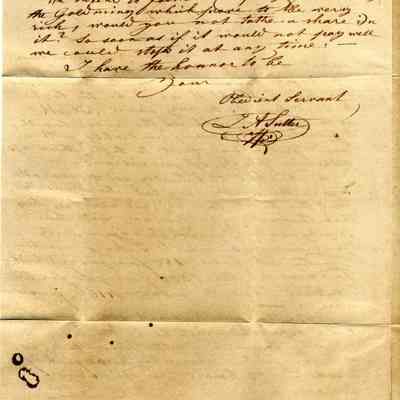 the Goldmines, which prove to be very
rich, would you not take a share in
it? So soon as if it would not pay well
we could stop it at any time. —
I have the honnor to be
Your
Obedient Servant
J A Sutter